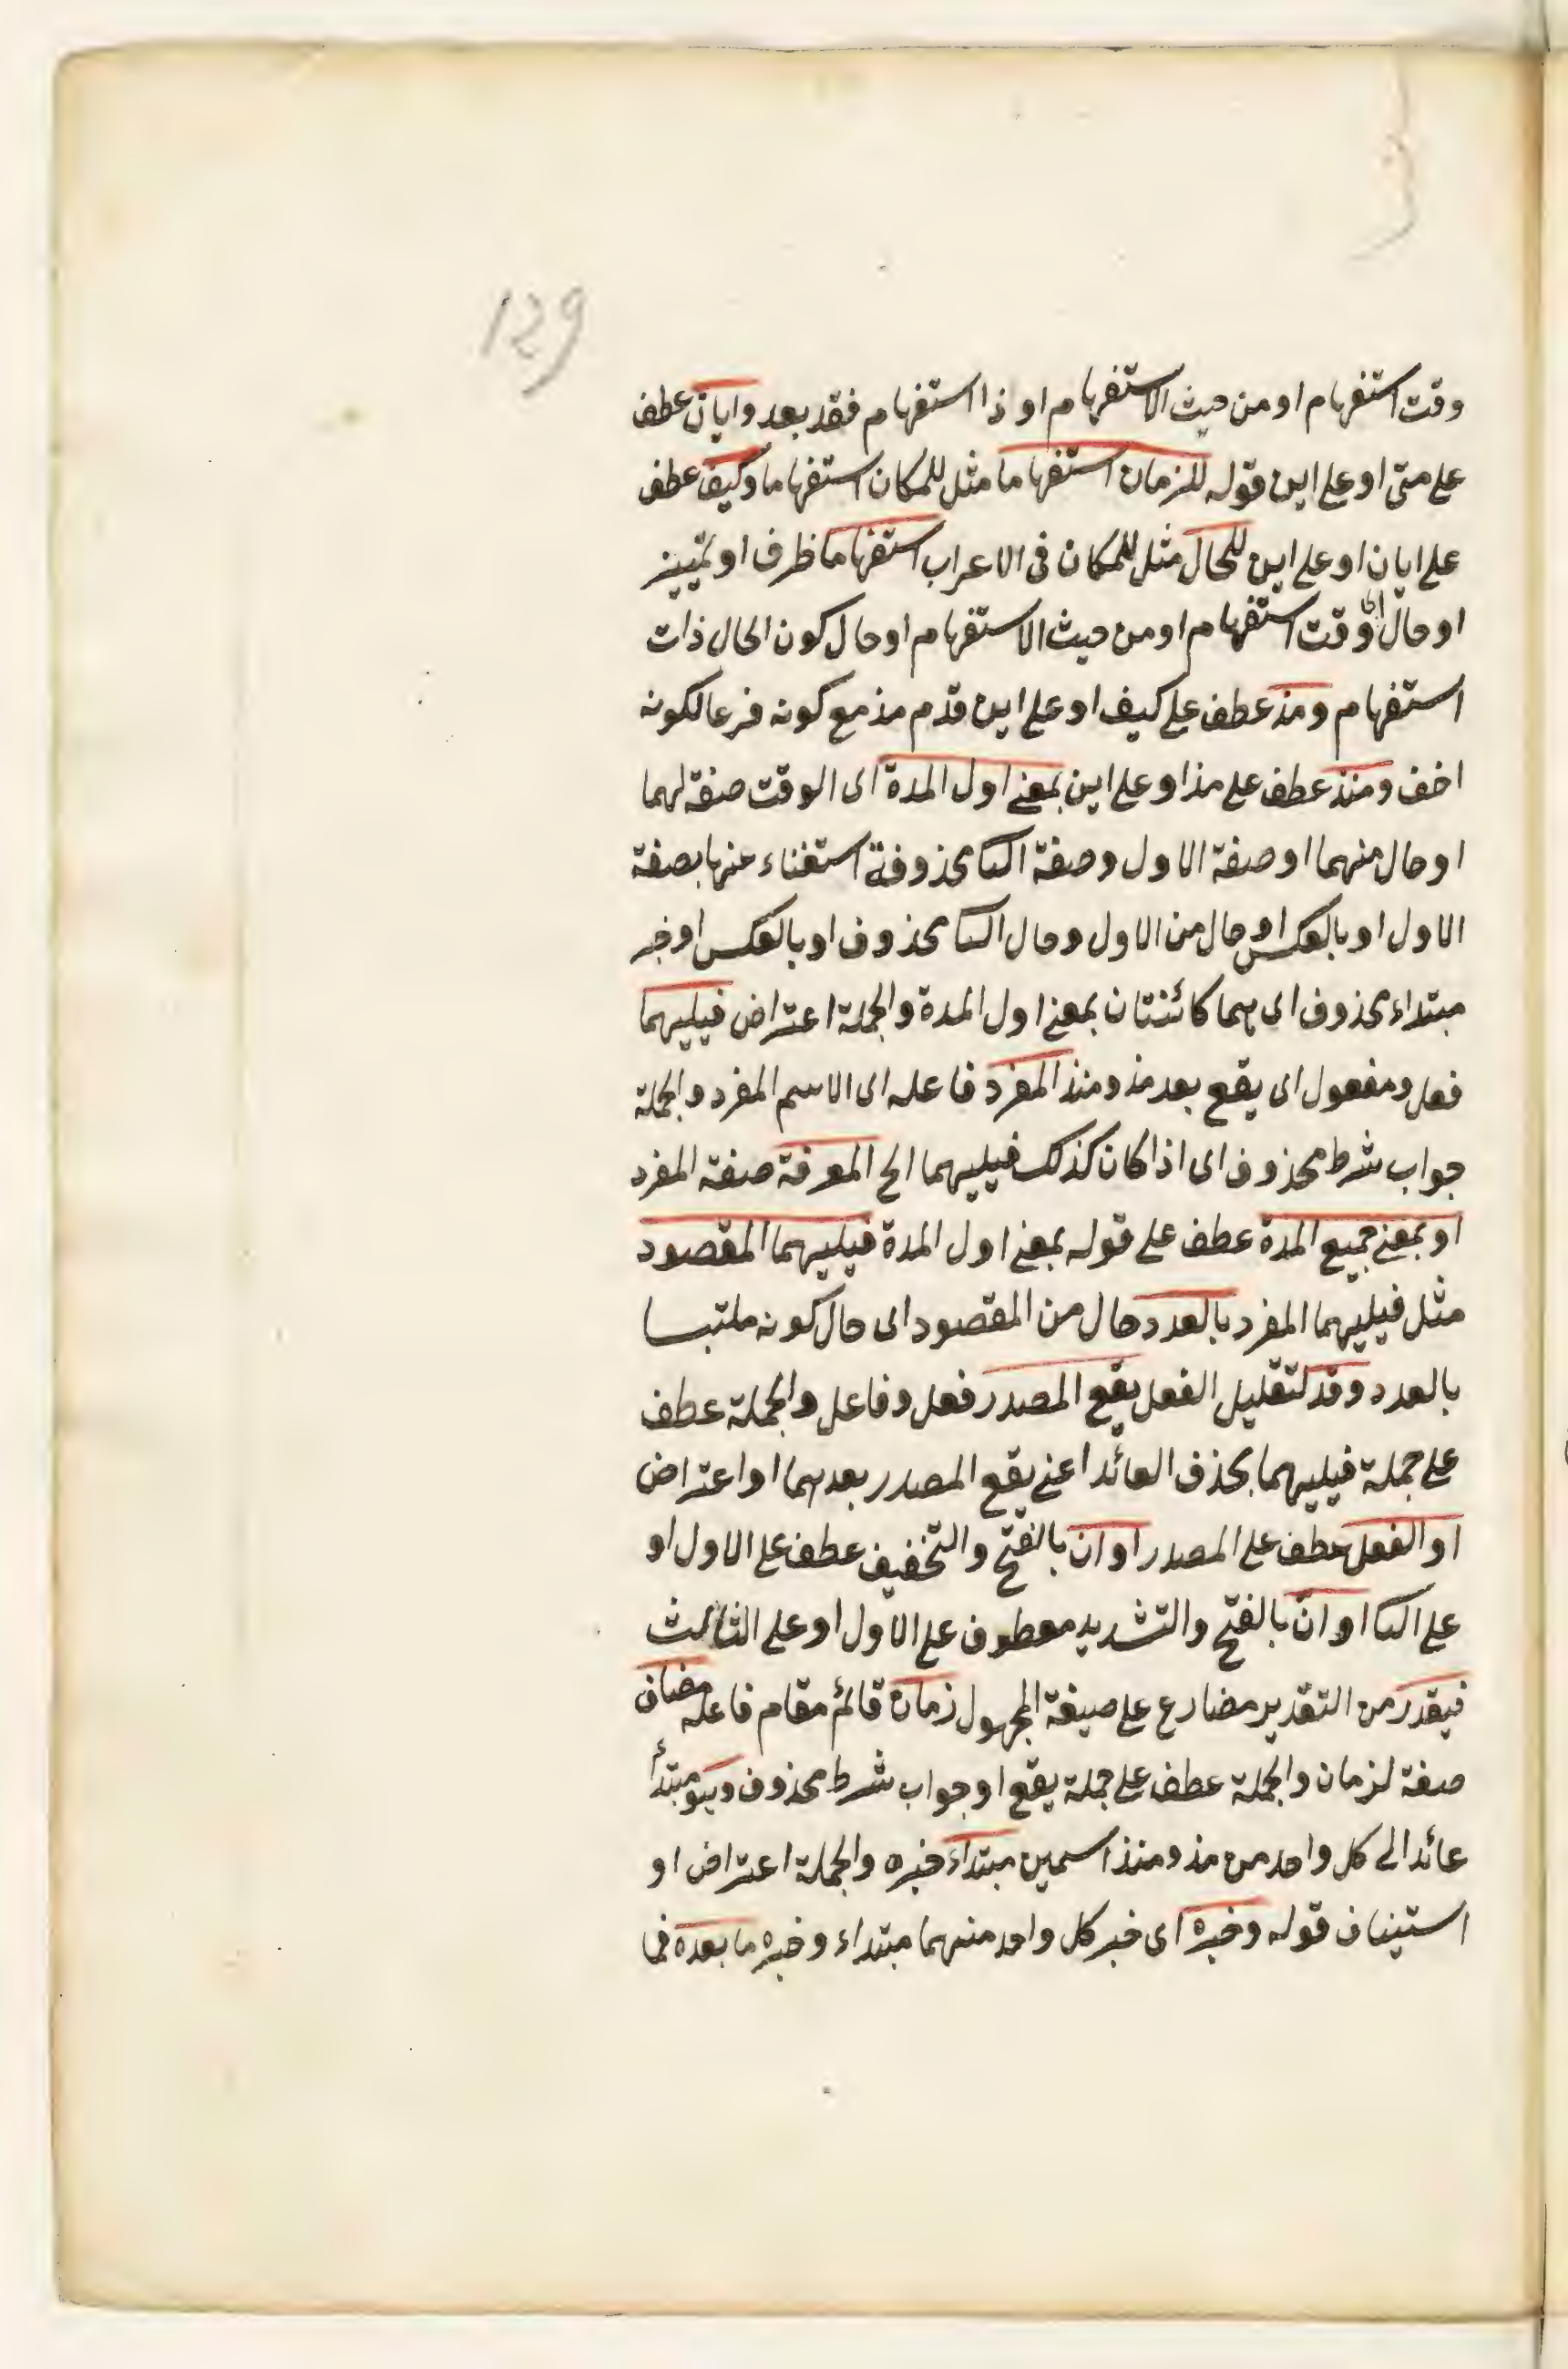 129
وقت استفهام او من حيث الاستفهام او ذا استفهام فقد بعد وايان عطف
على متى او على اين قوله للزمان استفهاما مثل للمكان استفهاما وكيف عطف
على ايان او على اين للحال مثل للمكان فى الاعراب استفهاما ظرف او تمييز
او حال اى وقت استفهام او من حيث الاستفهام او حال كون الحال ذات
استفهام ومذ عطف على كيف او على اين قدم مذ مع كونه فرعا لكونه
اخف ومنذ عطف على مذ او على اين بمعنى اول المدة اى الوقت صفة لهما
او حال منهما او صفة الاول وصفة الثا محذوفة استغناء عنها بصفة
الاول او بالعكس او حال من الاول وحال الثا محذوف او بالعكس او خبر
مبتداء محذوف اى هما كائنتان بمعنى اول المدة والجملة اعتراض فيليهما
فعل ومفعول اى يقع بعد مذ ومنذ المفرد فاعله اى الاسم المفرد والجملة
جواب شرط محذوف اى اذا كان كذلك فيليهما الخ المعرفة صفة المفرد
او بمعنى جميع المدة عطف على قوله بمعنى اول المدة فيليهما المقصود
مثل فيليهما المفرد بالعدد حال من المقصود اى حال كونه ملتبسا
بالعدد وقد لتقليل الفعل يقع المصدر فعل وفاعل والجملة عطف
على جملة فيليهما بحذف العائد اعنى يقع المصدر بعدهما او اعتراض
او الفعل عطف على المصدر او ان بالفتح والتخفيف عطف على الاول او
على الثا او انّ بالفتح والتشديد معطوف على الاول او على الثالث
فيقدر من التقدير مضارع على صيغة المجهول زمان قائم مقام فاعله مضاف
صفة لزمان والجملة عطف على جملة يقع او جواب شرط محذوف وهو مبتدأ
عائد الى كل واحد من مذ ومنذ اسمين مبتداء خبره والجملة اعتراض او
استيناف قوله وخبره اى خبر كل واحد منهما مبتداء وخبره ما بعده فى